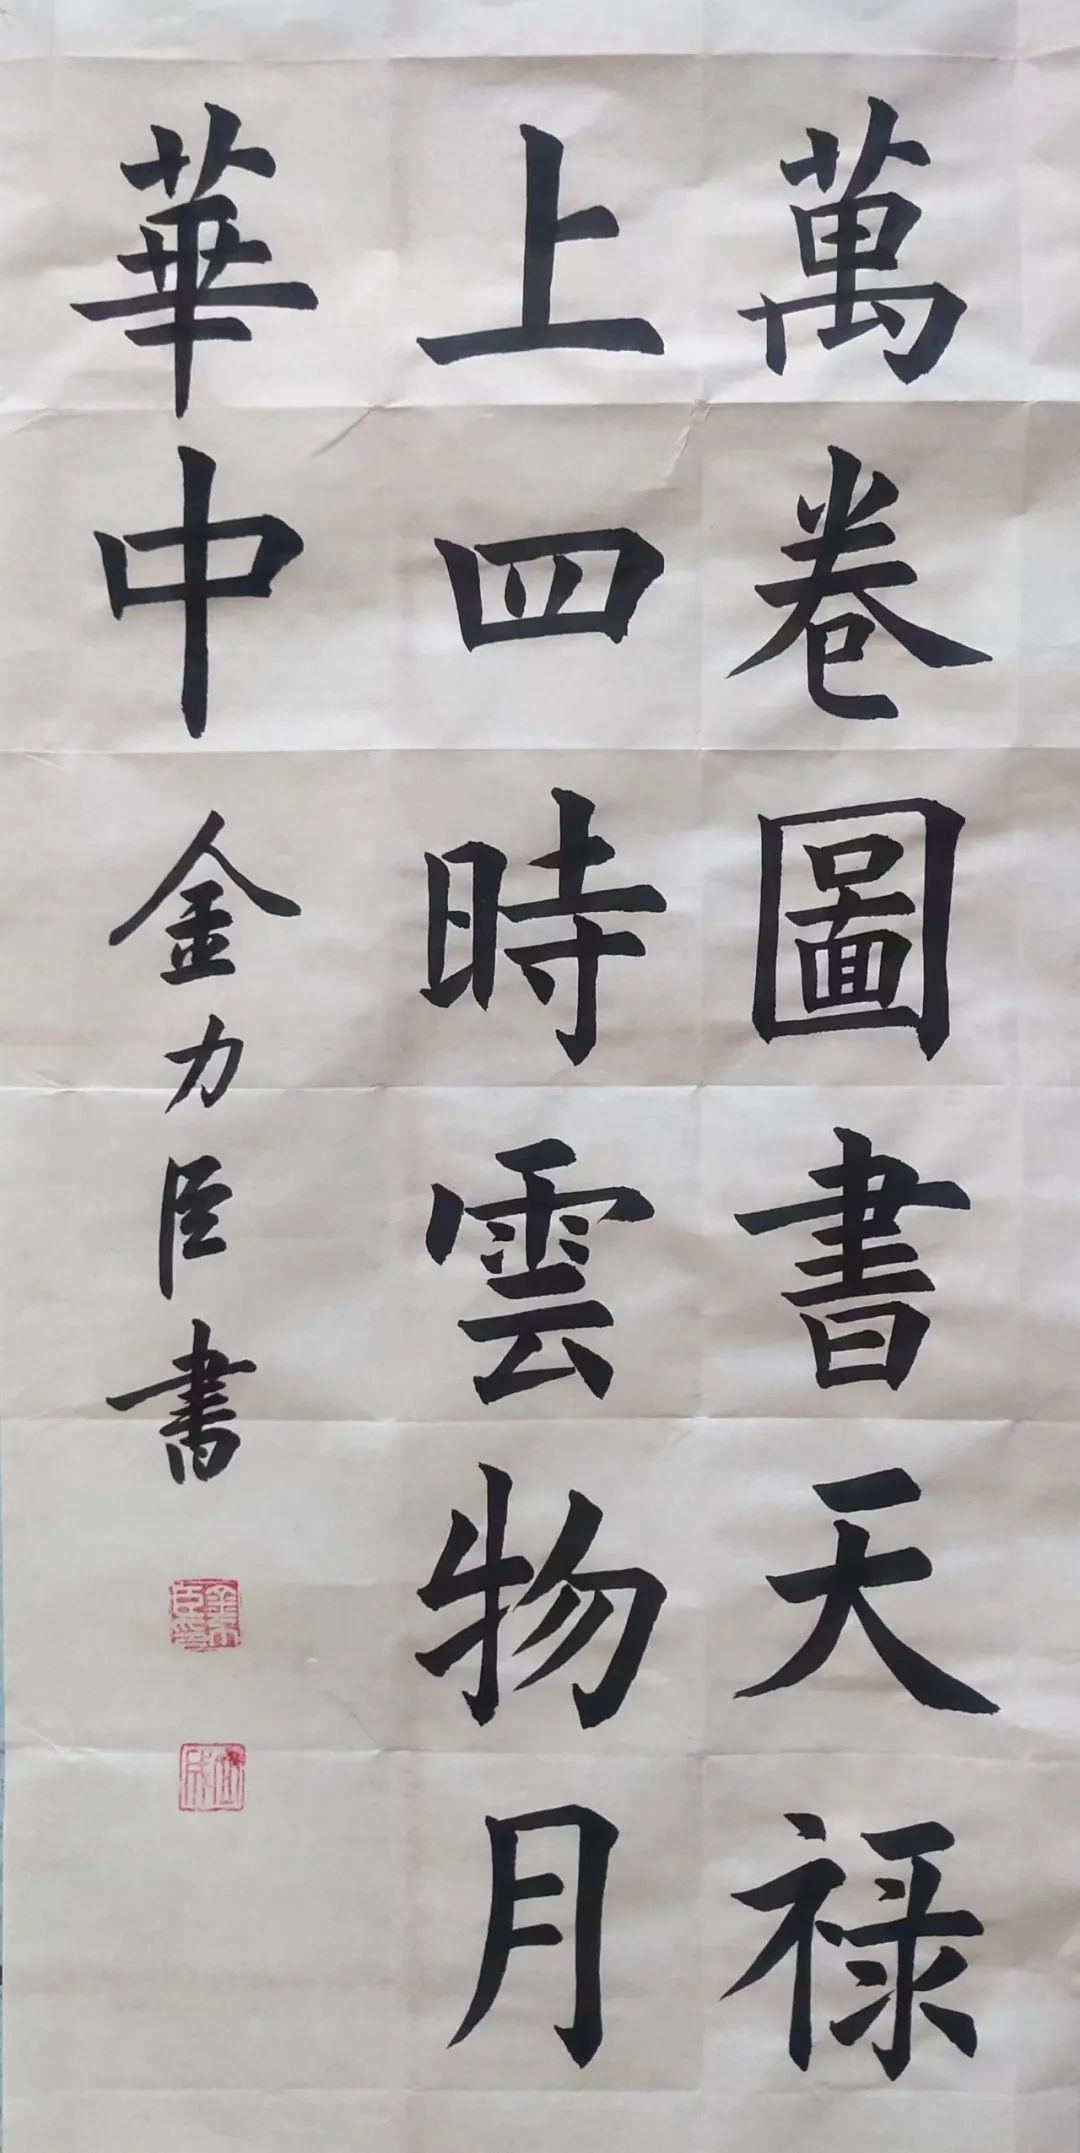 萬卷圖書天禄
上四時雲物月
華中
金力臣書